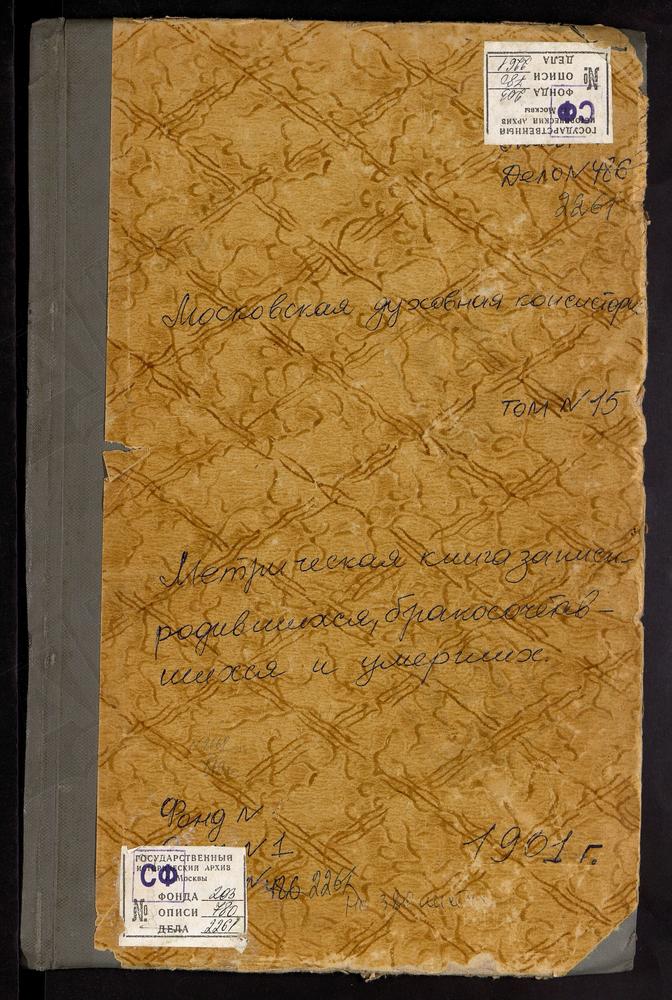 ГОСУДАРСТВЕННЫЙ
ИСТОРИЧЕСКИЙ АРХИВ
г. Москвы
СФ
№
ФОНДА 203
ОПИСИ 780
ДЕЛА 2261
Дело N 486
2261
Московская духовная консистория
том N 15
Метрическая книга записи
родившихся, бракосочетав-
шихся и умерших.
Фонд N
N 1
1901 г.
N 486 2261
ГОСУДАРСТВЕННЫЙ
ИСТОРИЧЕСКИЙ АРХИВ
г. Москвы
СФ
№
ФОНДА 203
ОПИСИ 780
ДЕЛА 2261